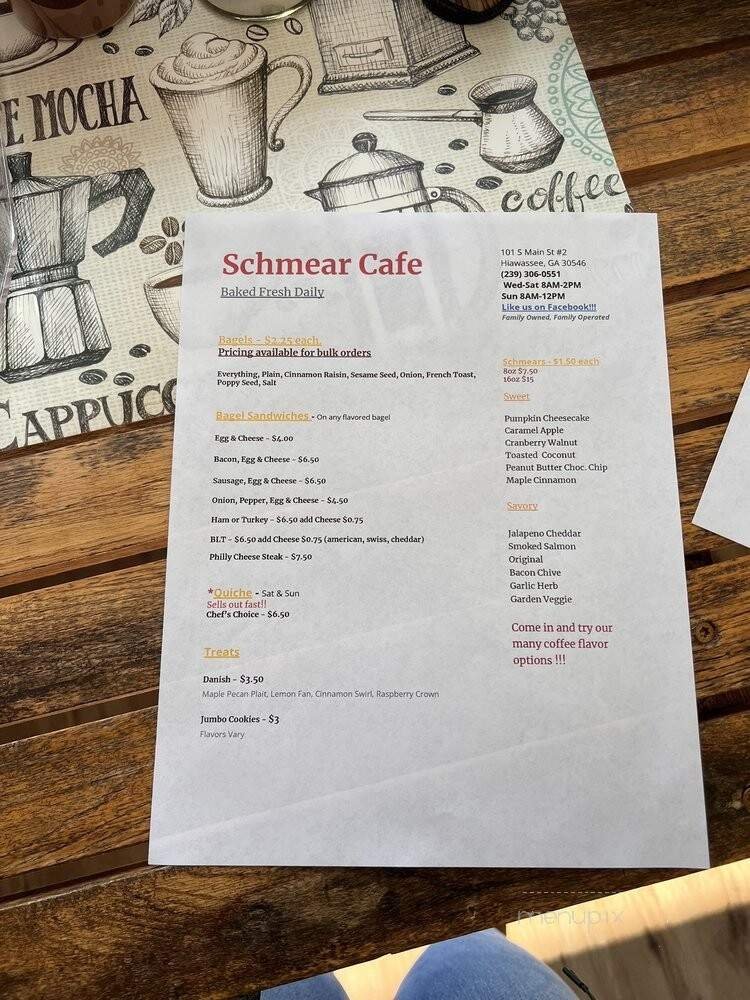 E MOCHA
coffee
CAPPUCC
Schmear Cafe
Baked Fresh Daily
101 S Main St #2
Hiawassee, GA 30546
(239) 306-0551
Wed-Sat 8AM-2PM
Sun 8AM-12PM
Like us on Facebook!!!
Family Owned, Family Operated
Bagels - $2.25 each,
Pricing available for bulk orders
Everything, Plain, Cinnamon Raisin, Sesame Seed, Onion, French Toast,
Poppy Seed, Salt
Bagel Sandwiches - On any flavored bagel
Egg & Cheese - $4.00
Bacon, Egg & Cheese - $6.50
Sausage, Egg & Cheese - $6.50
Onion, Pepper, Egg & Cheese - $4.50
Ham or Turkey - $6.50 add Cheese $0.75
BLT - $6.50 add Cheese $0.75 (american, swiss, cheddar)
Philly Cheese Steak - $7.50
*Quiche - Sat & Sun
Sells out fast!!
Chef's Choice - $6.50
Treats
Danish - $3.50
Maple Pecan Plait, Lemon Fan, Cinnamon Swirl, Raspberry Crown
Jumbo Cookies - $3
Flavors Vary
Schmears - $1.50 each
8oz $7.50
16oz $15
Sweet
Pumpkin Cheesecake
Caramel Apple
Cranberry Walnut
Toasted Coconut
Peanut Butter Choc. Chip
Maple Cinnamon
Savory
Jalapeno Cheddar
Smoked Salmon
Original
Bacon Chive
Garlic Herb
Garden Veggie
Come in and try our
many coffee flavor
options !!!
menupix